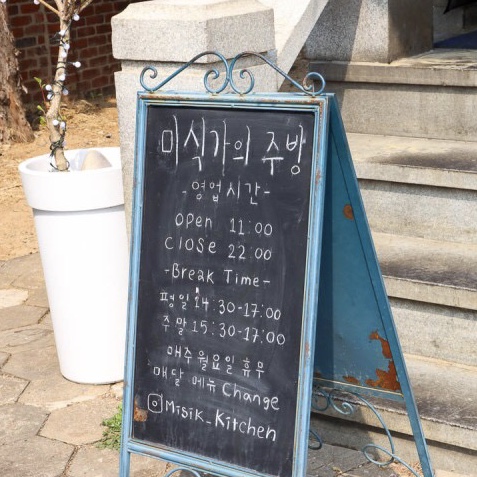 미식가의 주방
-영업시간-
Open 11:00
Close 22:00
-Break Time-
평일 14:30-17:00
주말 15:30-17:00
매주 월요일 휴무
매달 메뉴 Change
Misik_Kitchen